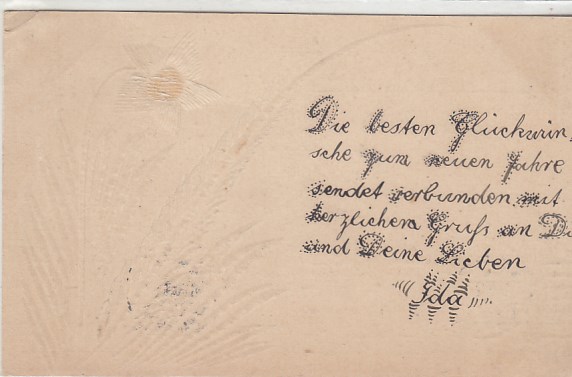 Die besten Glückwün,
sche zum neuen Jahre
sendet verbunden mit
herzlichem Gruß an Di
und Deine Lieben
Ida